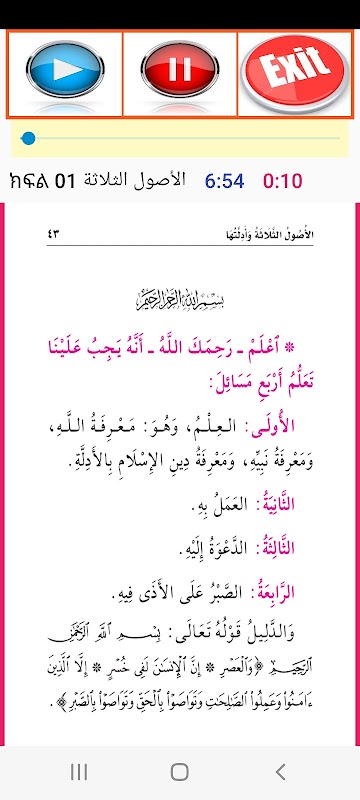 Exit
ክፍል 01 الأصول الثلاثة 6:54 0:10
الأُصُولُ الثَّلَاثَةُ وَأَدِلَّتُهَا ٤٣
بِسْمِ اللَّهِ الرَّحْمَنِ الرَّحِيمِ
* ٱعْلَمْ ـ رَحِمَكَ اللَّهُ ـ أَنَّهُ يَجِبُ عَلَيْنَا
تَعَلُّمُ أَرْبَعِ مَسَائِلَ:
الأُولَى: العِلْمُ، وَهُوَ: مَعْرِفَةُ اللَّهِ،
وَمَعْرِفَةُ نَبِيِّهِ، وَمَعْرِفَةُ دِينِ الإِسْلَامِ بِالأَدِلَّةِ.
الثَّانِيَةُ: العَمَلُ بِهِ.
الثَّالِثَةُ: الدَّعْوَةُ إِلَيْهِ.
الرَّابِعَةُ: الصَّبْرُ عَلَى الأَذَى فِيهِ.
وَالدَّلِيلُ قَوْلُهُ تَعَالَى: بِسْمِ اللَّهِ الرَّحْمَٰنِ
الرَّحِيمِ ﴿وَٱلْعَصْرِ * إِنَّ ٱلْإِنسَٰنَ لَفِى خُسْرٍ * إِلَّا ٱلَّذِينَ
ءَامَنُوا۟ وَعَمِلُوا۟ ٱلصَّٰلِحَٰتِ وَتَوَاصَوْا۟ بِٱلْحَقِّ وَتَوَاصَوْا۟ بِٱلصَّبْرِ﴾.